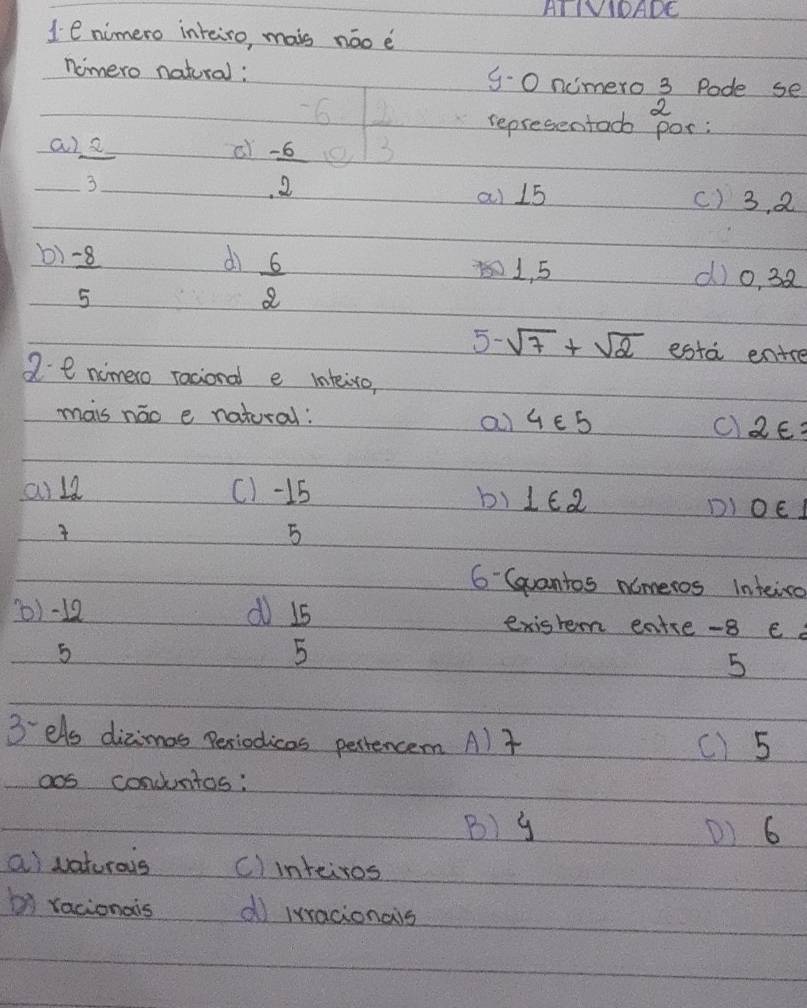 ATIVIDADE
1- e número inteiro, mais não é
número natural:
a) 2
3
c) -6
2
-6 2
0 3
b) -8
5
d) 6
2
2- e número racional e inteiro,
mais não e natural:
a) 12
7
c) -15
5
b) -12
5
d) 15
5
3- els dizimas Periodicas pertencem
aos conjuntos:
a) naturais c) inteiros
b) racionais d) irracionais
4- O número 3 Pode se
2
representado por:
a) 15 c) 3,2
b) 1,5 d) 0,32
5- √7 + √2 está entre
a) 4 E 5 c) 2 E
b) 1 E 2 D) 0 E 1
6- Quantos números Inteiro
existem entre -8 E
5
A) 7 C) 5
B) 4 D) 6